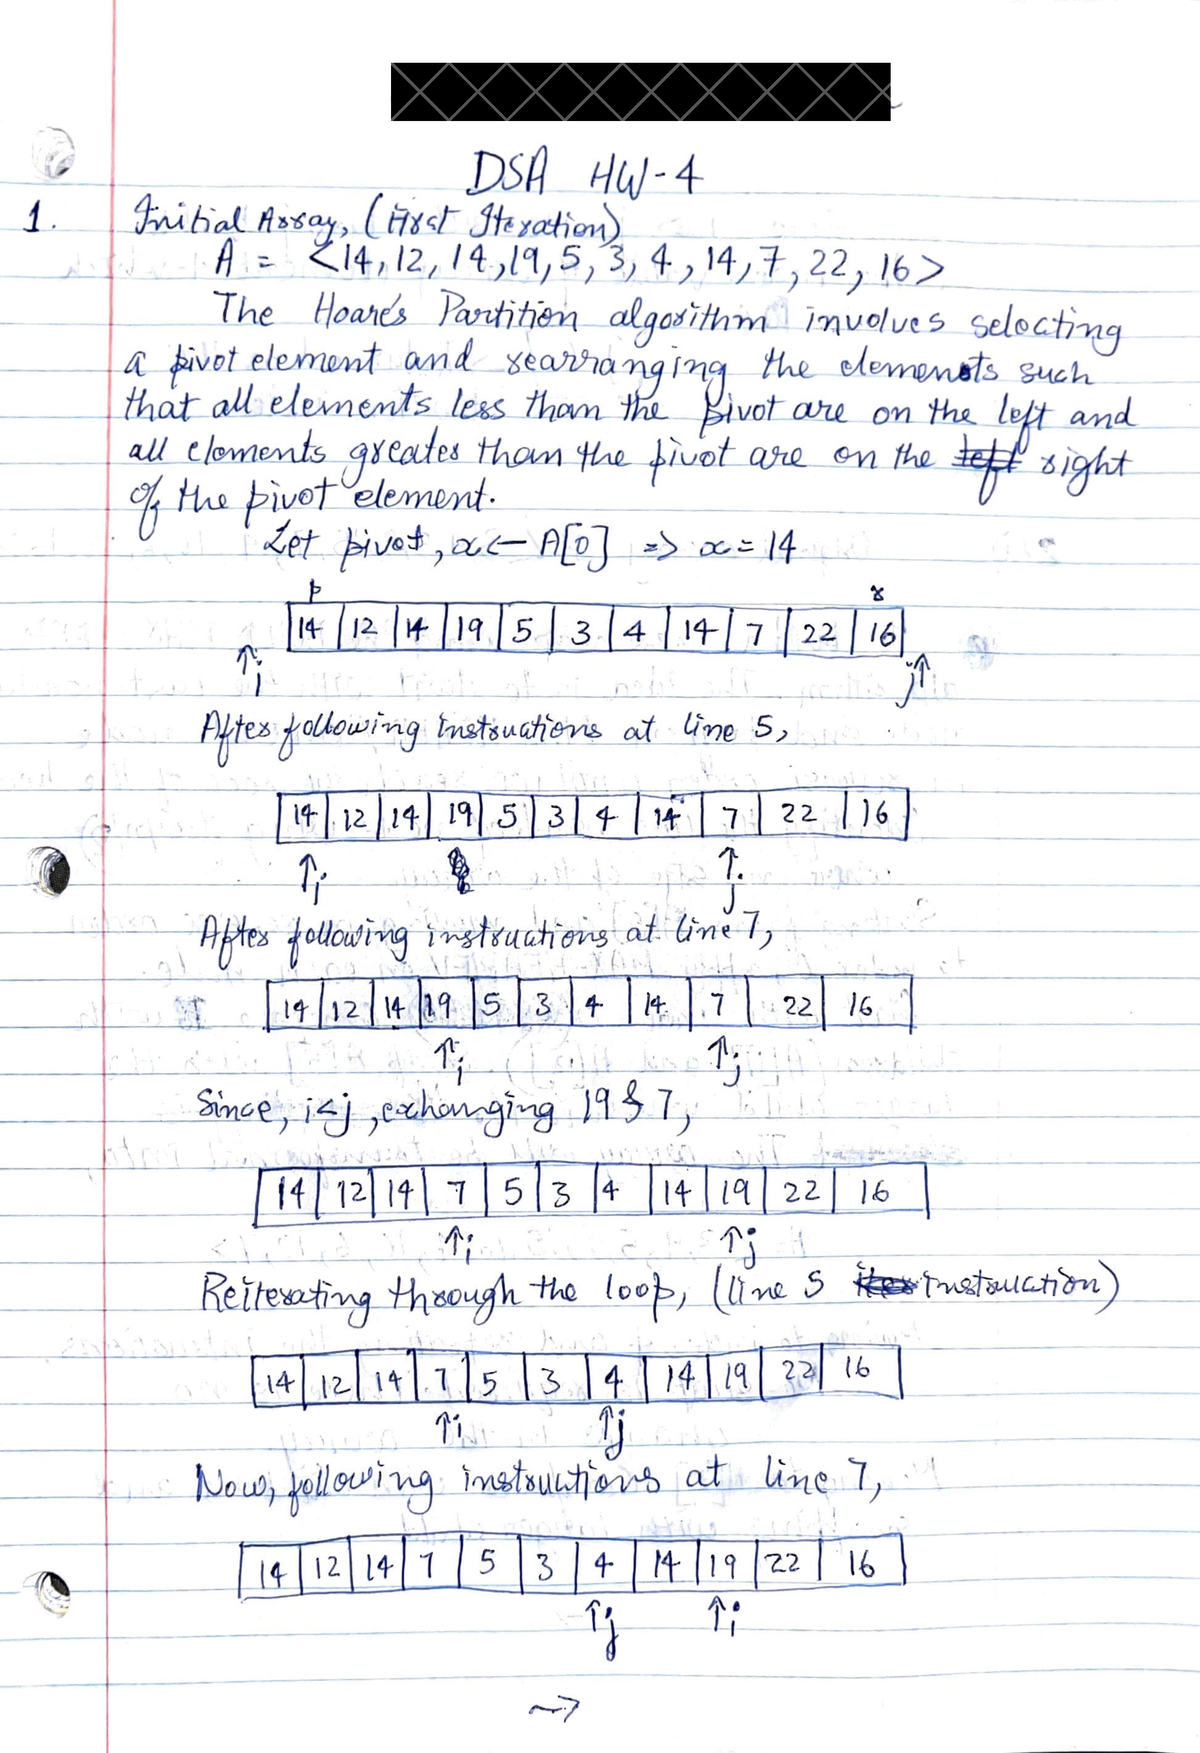 DSA HW-4
1. Initial Array, (First Iteration)
A = <14, 12, 14, 19, 5, 3, 4, 14, 7, 22, 16>
The Hoare's Partition algorithm involves selecting
a pivot element and rearranging the elements such
that all elements less than the pivot are on the left and
all elements greater than the pivot are on the left right
of the pivot element.
Let pivot, x ← A[0] => x = 14
p r
14 12 14 19 5 3 4 14 7 22 16
↑i j↑
After following instructions at line 5,
14 12 14 19 5 3 4 14 7 22 16
↑i ↑j
After following instructions at line 7,
14 12 14 19 5 3 4 14 7 22 16
↑i ↑j
Since, i<j, exchanging 19 & 7,
14 12 14 7 5 3 4 14 19 22 16
↑i ↑j
Reiterating through the loop, (line 5 instruction)
14 12 14 7 5 3 4 14 19 22 16
↑i ↑j
Now, following instructions at line 7,
14 12 14 7 5 3 4 14 19 22 16
↑j ↑i
~>